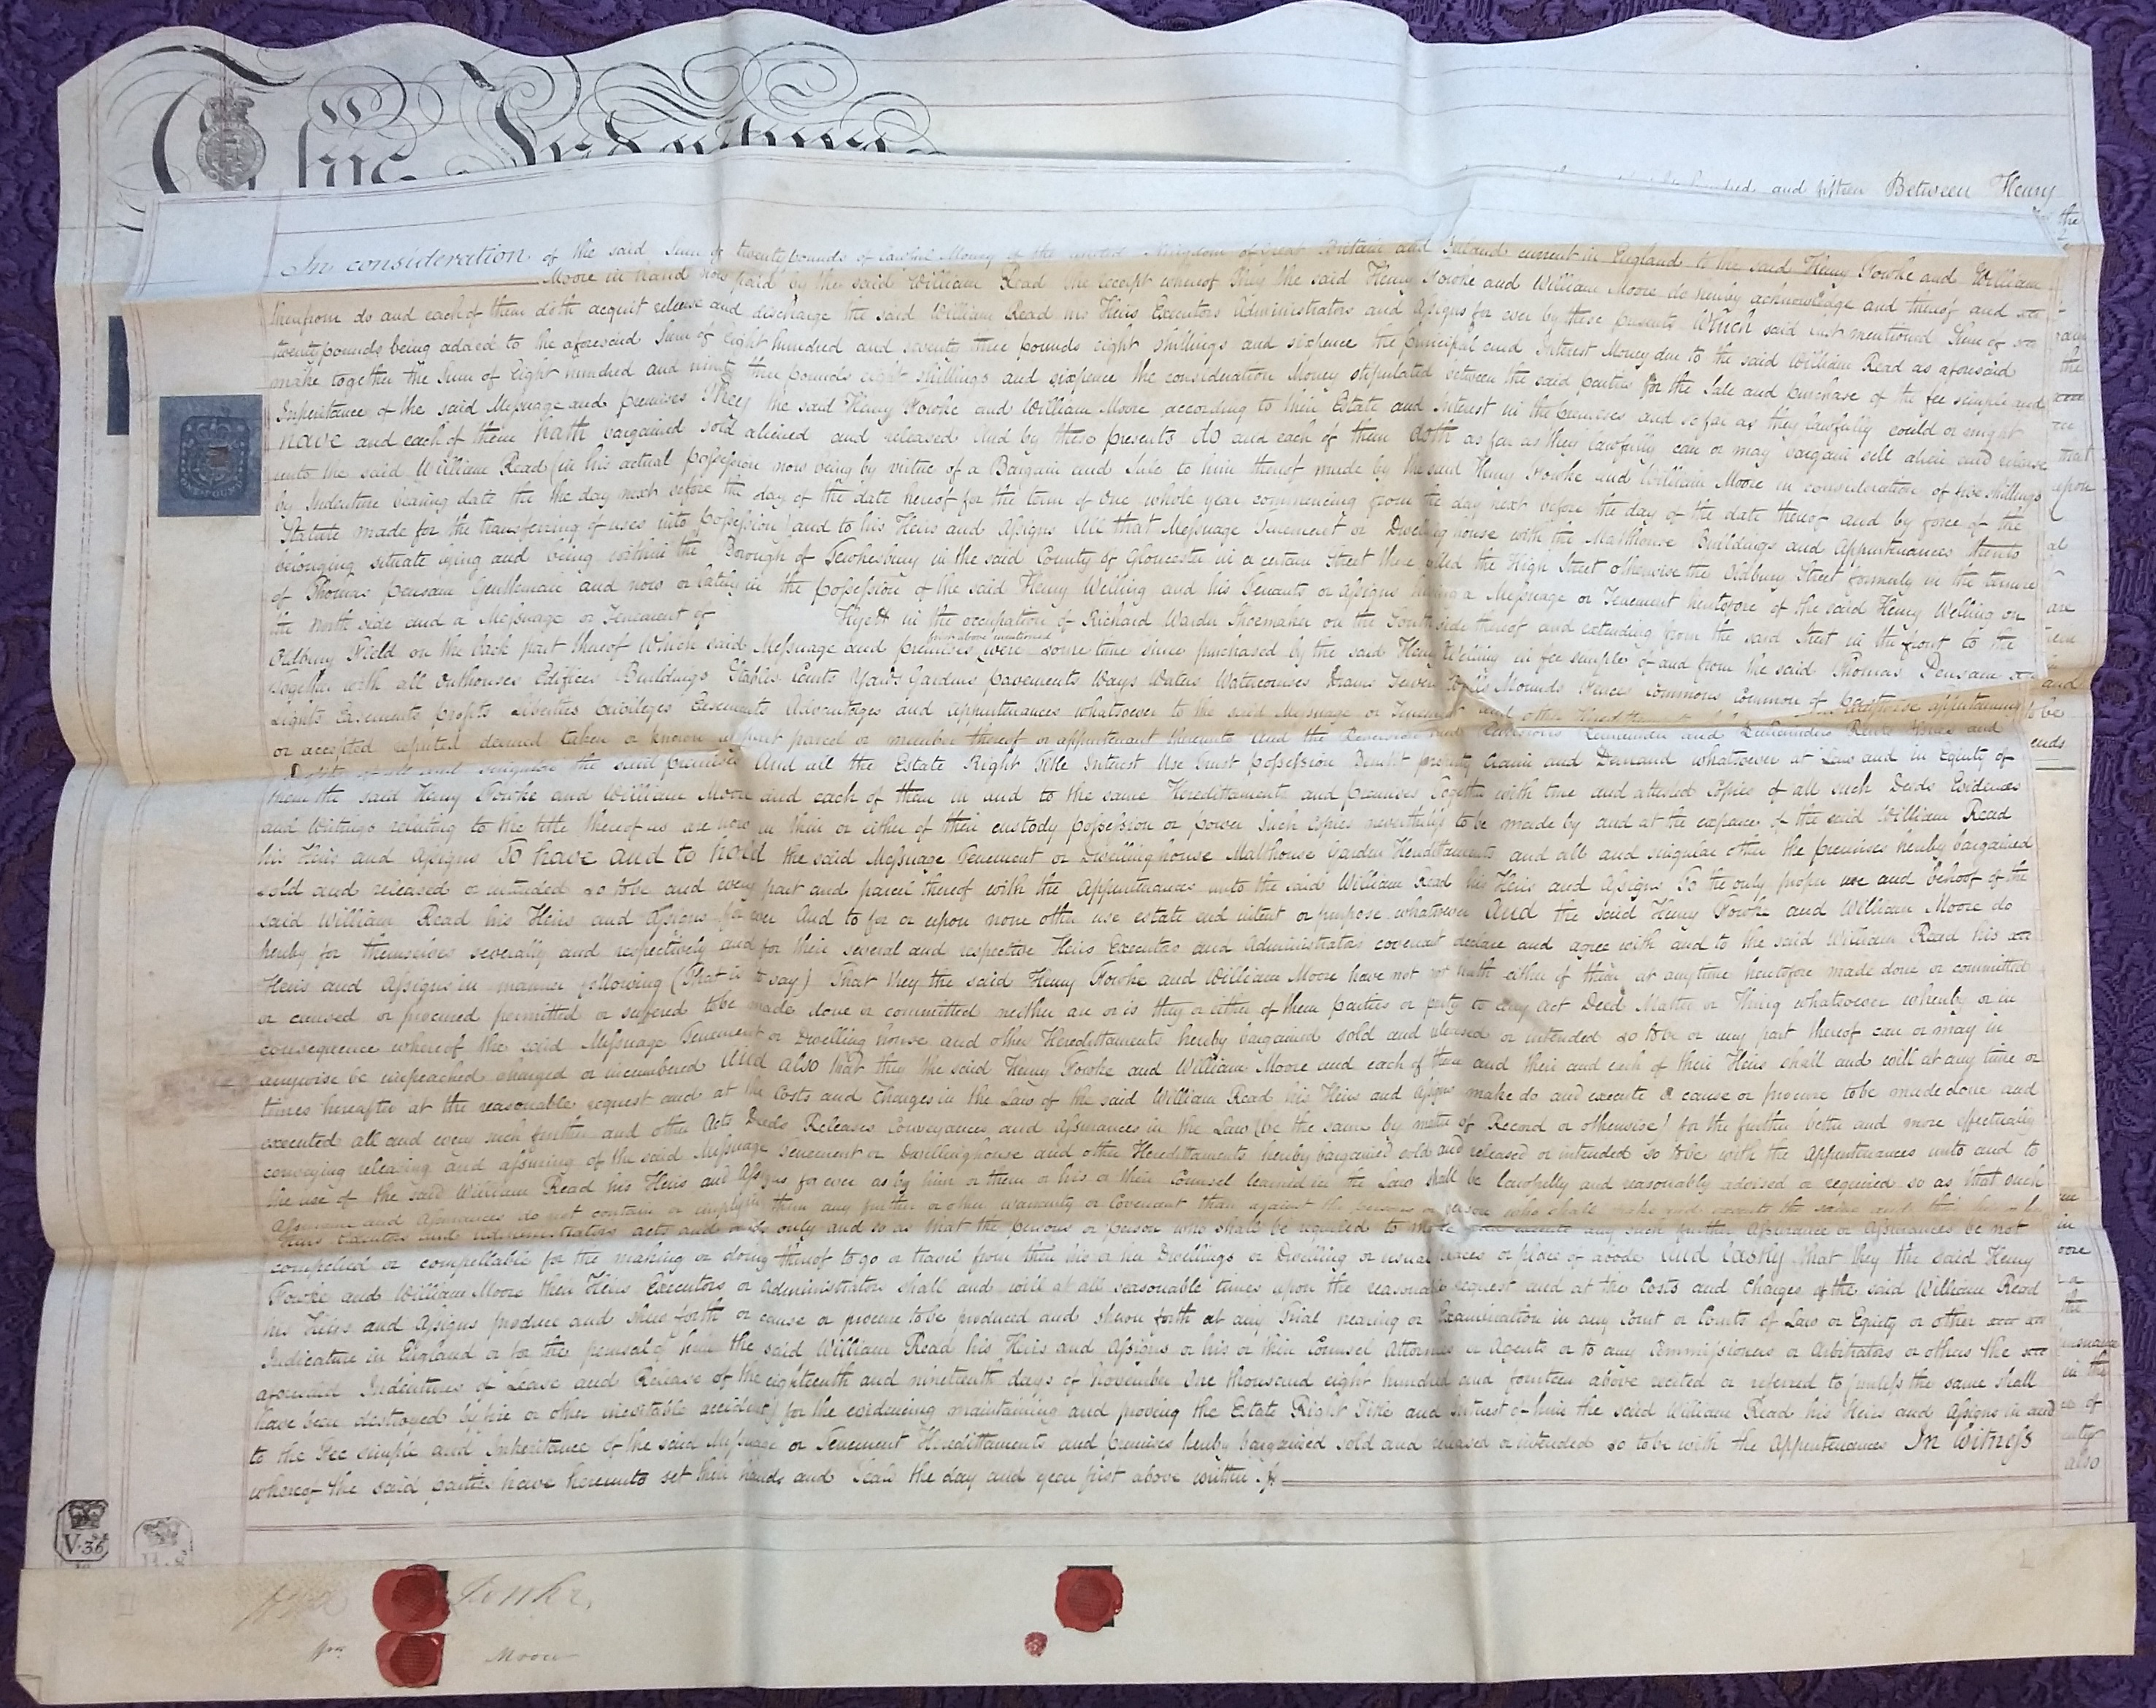 This Indenture
hundred and fifteen Between Henry
the
In consideration of the said Sum of twenty pounds of lawful Money of the united Kingdom of Great Britain and Ireland current in England to the said Henry Fowke and William
Moore in hand now paid by the said William Read the receipt whereof they the said Henry Fowke and William Moore do hereby acknowledge and thereof and
therefrom do and each of them doth acquit release and discharge the said William Read his Heirs Executors Administrators and Assigns for ever by these presents Which said last mentioned Sum of
twenty pounds being added to the aforesaid Sum of eight hundred and seventy three pounds eight shillings and sixpence the principal and Interest Money due to the said William Read as aforesaid
make together the Sum of Eight hundred and ninety three pounds eight shillings and sixpence the consideration Money stipulated between the said parties for the Sale and purchase of the fee simple and
Inheritance of the said Messuage and premises They the said Henry Fowke and William Moore according to their Estate and Interest in the premises and so far as they lawfully could or might
have and each of them hath bargained sold aliened and released And by these presents do and each of them doth as far as they lawfully can or may bargain sell alien and release
unto the said William Read (in his actual possession now being by virtue of a Bargain and Sale to him thereof made by the said Henry Fowke and William Moore in consideration of five shillings
by Indenture bearing date the the day next before the day of the date hereof for the term of one whole year commencing from the day next before the day of the date thereof and by force of the
Statute made for the transferring of uses into possession) and to his Heirs and Assigns All that Messuage Tenement or Dwelling house with the Malthouse Buildings and Appurtenances thereto
belonging situate lying and being within the Borough of Tewkesbury in the said County of Gloucester in a certain Street there called the High Street otherwise the Oldbury Street formerly in the tenure
of Thomas Pensam Gentleman and now or lately in the possession of the said Henry Welling and his Tenants or Assigns having a Messuage or Tenement heretofore of the said Henry Welling on
the North side and a Messuage or Tenement of Hyett in the occupation of Richard Warder Shoemaker on the South side thereof and extending from the said Street in the front to the
Oldbury Field on the back part thereof Which said Messuage and premises first above mentioned were some time since purchased by the said Henry Welling in fee simple of and from the said Thomas Pensam
Together with all Outhouses Edifices Buildings Stables Courts Yards Gardens pavements Ways Waters Watercourses Drains Sewers Walls Mounds Fences Commons Common of pasture
Lights Easements profits Liberties privileges Easements Advantages and Appurtenances whatsoever to the said Messuage or Tenement and other Hereditaments appertaining
or accepted reputed deemed taken or known as part parcel or member thereof or appurtenant thereunto And the Reversion and Reversions Remainder and Remainders Rents Issues and
Profits of all and singular the said premises And all the Estate Right Title Interest Use trust possession Benefit property Claim and Demand whatsoever at Law and in Equity of
them the said Henry Fowke and William Moore and each of them in and to the same Hereditaments and premises Together with true and attested Copies of all such Deeds Evidences
and Writings relating to the title thereof as are now in their or either of their custody possession or power Such Copies nevertheless to be made by and at the expence of the said William Read
his Heirs and Assigns To have and to hold the said Messuage Tenement or Dwelling house Malthouse Garden Hereditaments and all and singular other the premises hereby bargained
sold and released or intended so to be and every part and parcel thereof with the Appurtenances unto the said William Read his Heirs and Assigns To the only proper use and behoof of the
said William Read his Heirs and Assigns for ever And to for or upon none other use estate end intent or purpose whatsoever And the said Henry Fowke and William Moore do
hereby for themselves severally and respectively and for their several and respective Heirs Executors and Administrators covenant declare and agree with and to the said William Read his
Heirs and Assigns in manner following (That is to say) That they the said Henry Fowke and William Moore have not nor hath either of them at any time heretofore made done or committed
or caused or procured permitted or suffered to be made done or committed neither are or is they or either of them parties or party to any Act Deed Matter or Thing whatsoever whereby or in
consequence whereof the said Messuage Tenement or Dwelling house and other Hereditaments hereby bargained sold and released or intended so to be or any part thereof can or may in
anywise be impeached charged or incumbered And also that they the said Henry Fowke and William Moore and each of them and their and each of their Heirs shall and will at any time or
times hereafter at the reasonable request and at the Costs and Charges in the Law of the said William Read his Heirs and Assigns make do and execute or cause or procure to be made done and
executed all and every such further and other Acts Deeds Releases Conveyances and Assurances in the Law (be the same by matter of Record or otherwise) for the further better and more effectually
conveying releasing and assuring of the said Messuage Tenement or Dwellinghouse and other Hereditaments hereby bargained sold and released or intended so to be with the Appurtenances unto and to
the use of the said William Read his Heirs and Assigns for ever as by him or them or his or their Counsel learned in the Law shall be lawfully and reasonably advised or required so as that such
Assurance and Assurances do not contain or imply in them any further or other warranty or Covenant than against the persons or person who shall make and execute the same and
Heirs Executors and Administrators acts and deeds only and so as that the persons or person who shall be required to make any such further Assurance or Assurances be not
compelled or compellable for the making or doing thereof to go or travel from their his or her Dwellings or Dwelling or usual places or place of abode And Lastly that they the said Henry
Fowke and William Moore their Heirs Executors or Administrators shall and will at all seasonable times upon the reasonable request and at the Costs and Charges of the said William Read
his Heirs and Assigns produce and shew forth or cause or procure to be produced and shewn forth at any Trial hearing or Examination in any Court or Courts of Law or Equity or other
Judicature in England or for the perusal of him the said William Read his Heirs and Assigns or his or their Counsel Attornies or Agents or to any Commissioners or Arbitrators or others the
aforesaid Indentures of Lease and Release of the eighteenth and nineteenth days of November One thousand eight hundred and fourteen above recited or referred to (unless the same shall
have been destroyed by fire or other inevitable accident) for the evidencing maintaining and proving the Estate Right Title and Interest of him the said William Read his Heirs and Assigns in and
to the Fee simple and Inheritance of the said Messuage or Tenement Hereditaments and premises hereby bargained sold and released or intended so to be with the Appurtenances In Witness
whereof the said parties have hereunto set their hands and Seals the day and year first above written
the
that
upon
are
and
to be
in
the
in the
of
also
ONE POUND
V.36
Fowke
Wm Moore